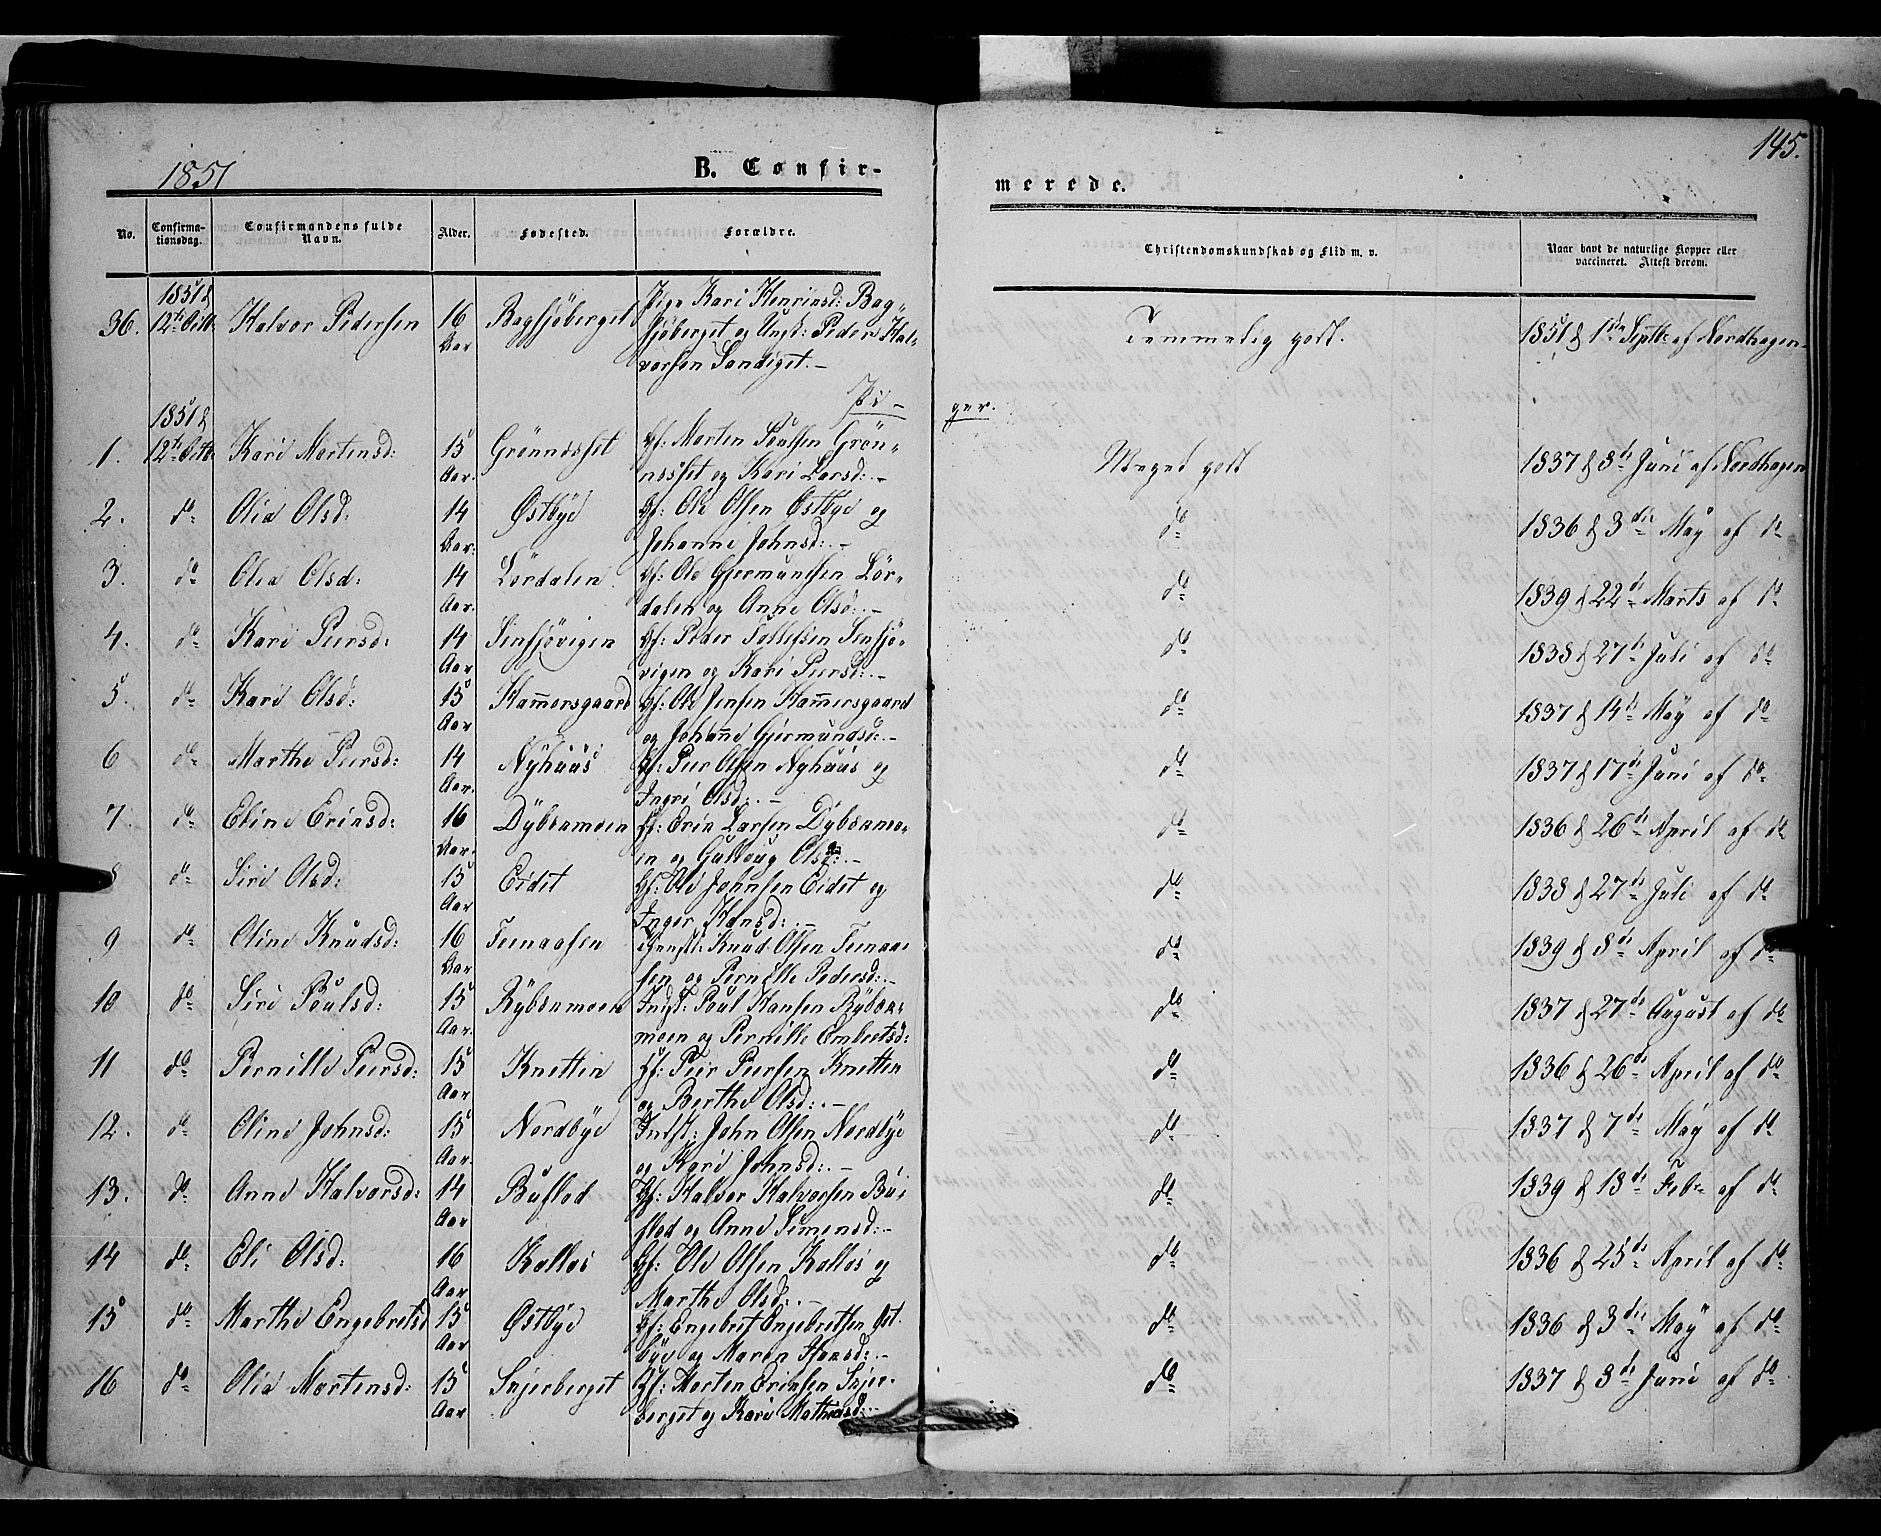 145.
1851
B. Confir-
merede.
No. Confirma-tionsdag. Confirmandens fulde Navn. Alder. Fødested. Forældre. Christendomskundskab og Flid m. v. Naar havt de naturlige Kopper eller vaccineret. Attest derom.
36. 1851 d 12te Octb Halvor Pedersen 16 Aar Bagsjöberget Pige Kari Henriksd: Bag-
sjöberget og Ungk: Peder Hal- Temmelig godt. 1851 d 1ste Septb: af Nordhagen
vorsen Sandiget.-
Pi-
ger.
1. 1851 d 12te Octb Kari Mortensd: 15 Aar. Grönnæsset Hf: Morten Poulsen Grön-
næsset og Kari Larsd:.- Meget godt 1837 d 8de Juni af Nordhagen
2. do Olia Olsd: 14 Aar. Østbye Hf: Ole Olsen Østbye og
Johanne Johnsd:.- do 1836 d 3die May af do
3. do Olea Olsd: 14 Aar. Lördalen Hf: Ole Gjermundsen Lör-
dalen og Anne Olsd:.- do 1839 d 22de Marts af do
4. do Kari Peersd: 14 Aar Sensjövigen Hf: Peder Tollefsen Sensjö-
vigen og Kari Peersd:.- do 1838 d 27de Juli af do
5. do Kari Olsd: 15 Aar Hamersgaard Hf: Ole Jensen Hamersgaard
og Johanne Gjermundsd:.- do 1837 d 14de May af do
6 do Marthe Peersd: 14 Aar. Nyhuus Hf: Peer Olsen Nyhuus og
Ingri Olsd:.- do 1837 d 17de Juni af do
7. do Eline Eriksd: 16 Aar. Dybenmoen Hf: Erik Larsen Dybenmo-
en og Gulloug Olsd:.- do 1836 d 26de April af do
8 do Siri Olsd: 15 Aar Eidet Hf: Ole Johnsen Eidet og
Inger Hansd:.- do 1838 d 27de Juli af do
9 do Oline Knudsd: 16 Aar Knud Olsen
sen og Pernille Pedersd:.- do 1839 d 8de April af do
10 do Siri Poulsd: 15 Aar. Rybenmoen Indst: Poul Hansen Ryben-
moen og Pernille Embretsd: do 1837 d 27de August af do
11 do Pernille Peersd: 15 Aar Knetten Hf: Peer Peersen Knetten
og Berthe Olsd:.- do 1836 d 26de April af do
12. do Oline Johnsd: 15 Aar. Nordbye Indst: John Olsen Nordbye
og Kari Johnsd:.- do 1837 d 7de May af do
13. do Anne Halvorsd: 14 Aar Buflod Hf: Halvor Halvorsen Bu-
flod og Anne Simensd:.- do 1839 d 18de Febr af do
14 do Eli Olsd: 16 Aar Kollos Hf: Ole Olsen Kollos og
Marthe Olsd:.- do 1836 d 25de April af do
15 do Marthe Engebretsd 15 Aar Østbye Hf: Engebret Engebretsen Øst-
bye og Maren Hansd:.- do 1836 d 3die May af do
16 do Olea Mortensd: 15 Aar Snjerberget Hf: Morten Eriksen Snjer-
berget og Kari Mathiasd:.- do 1837 d 8de Juni af do